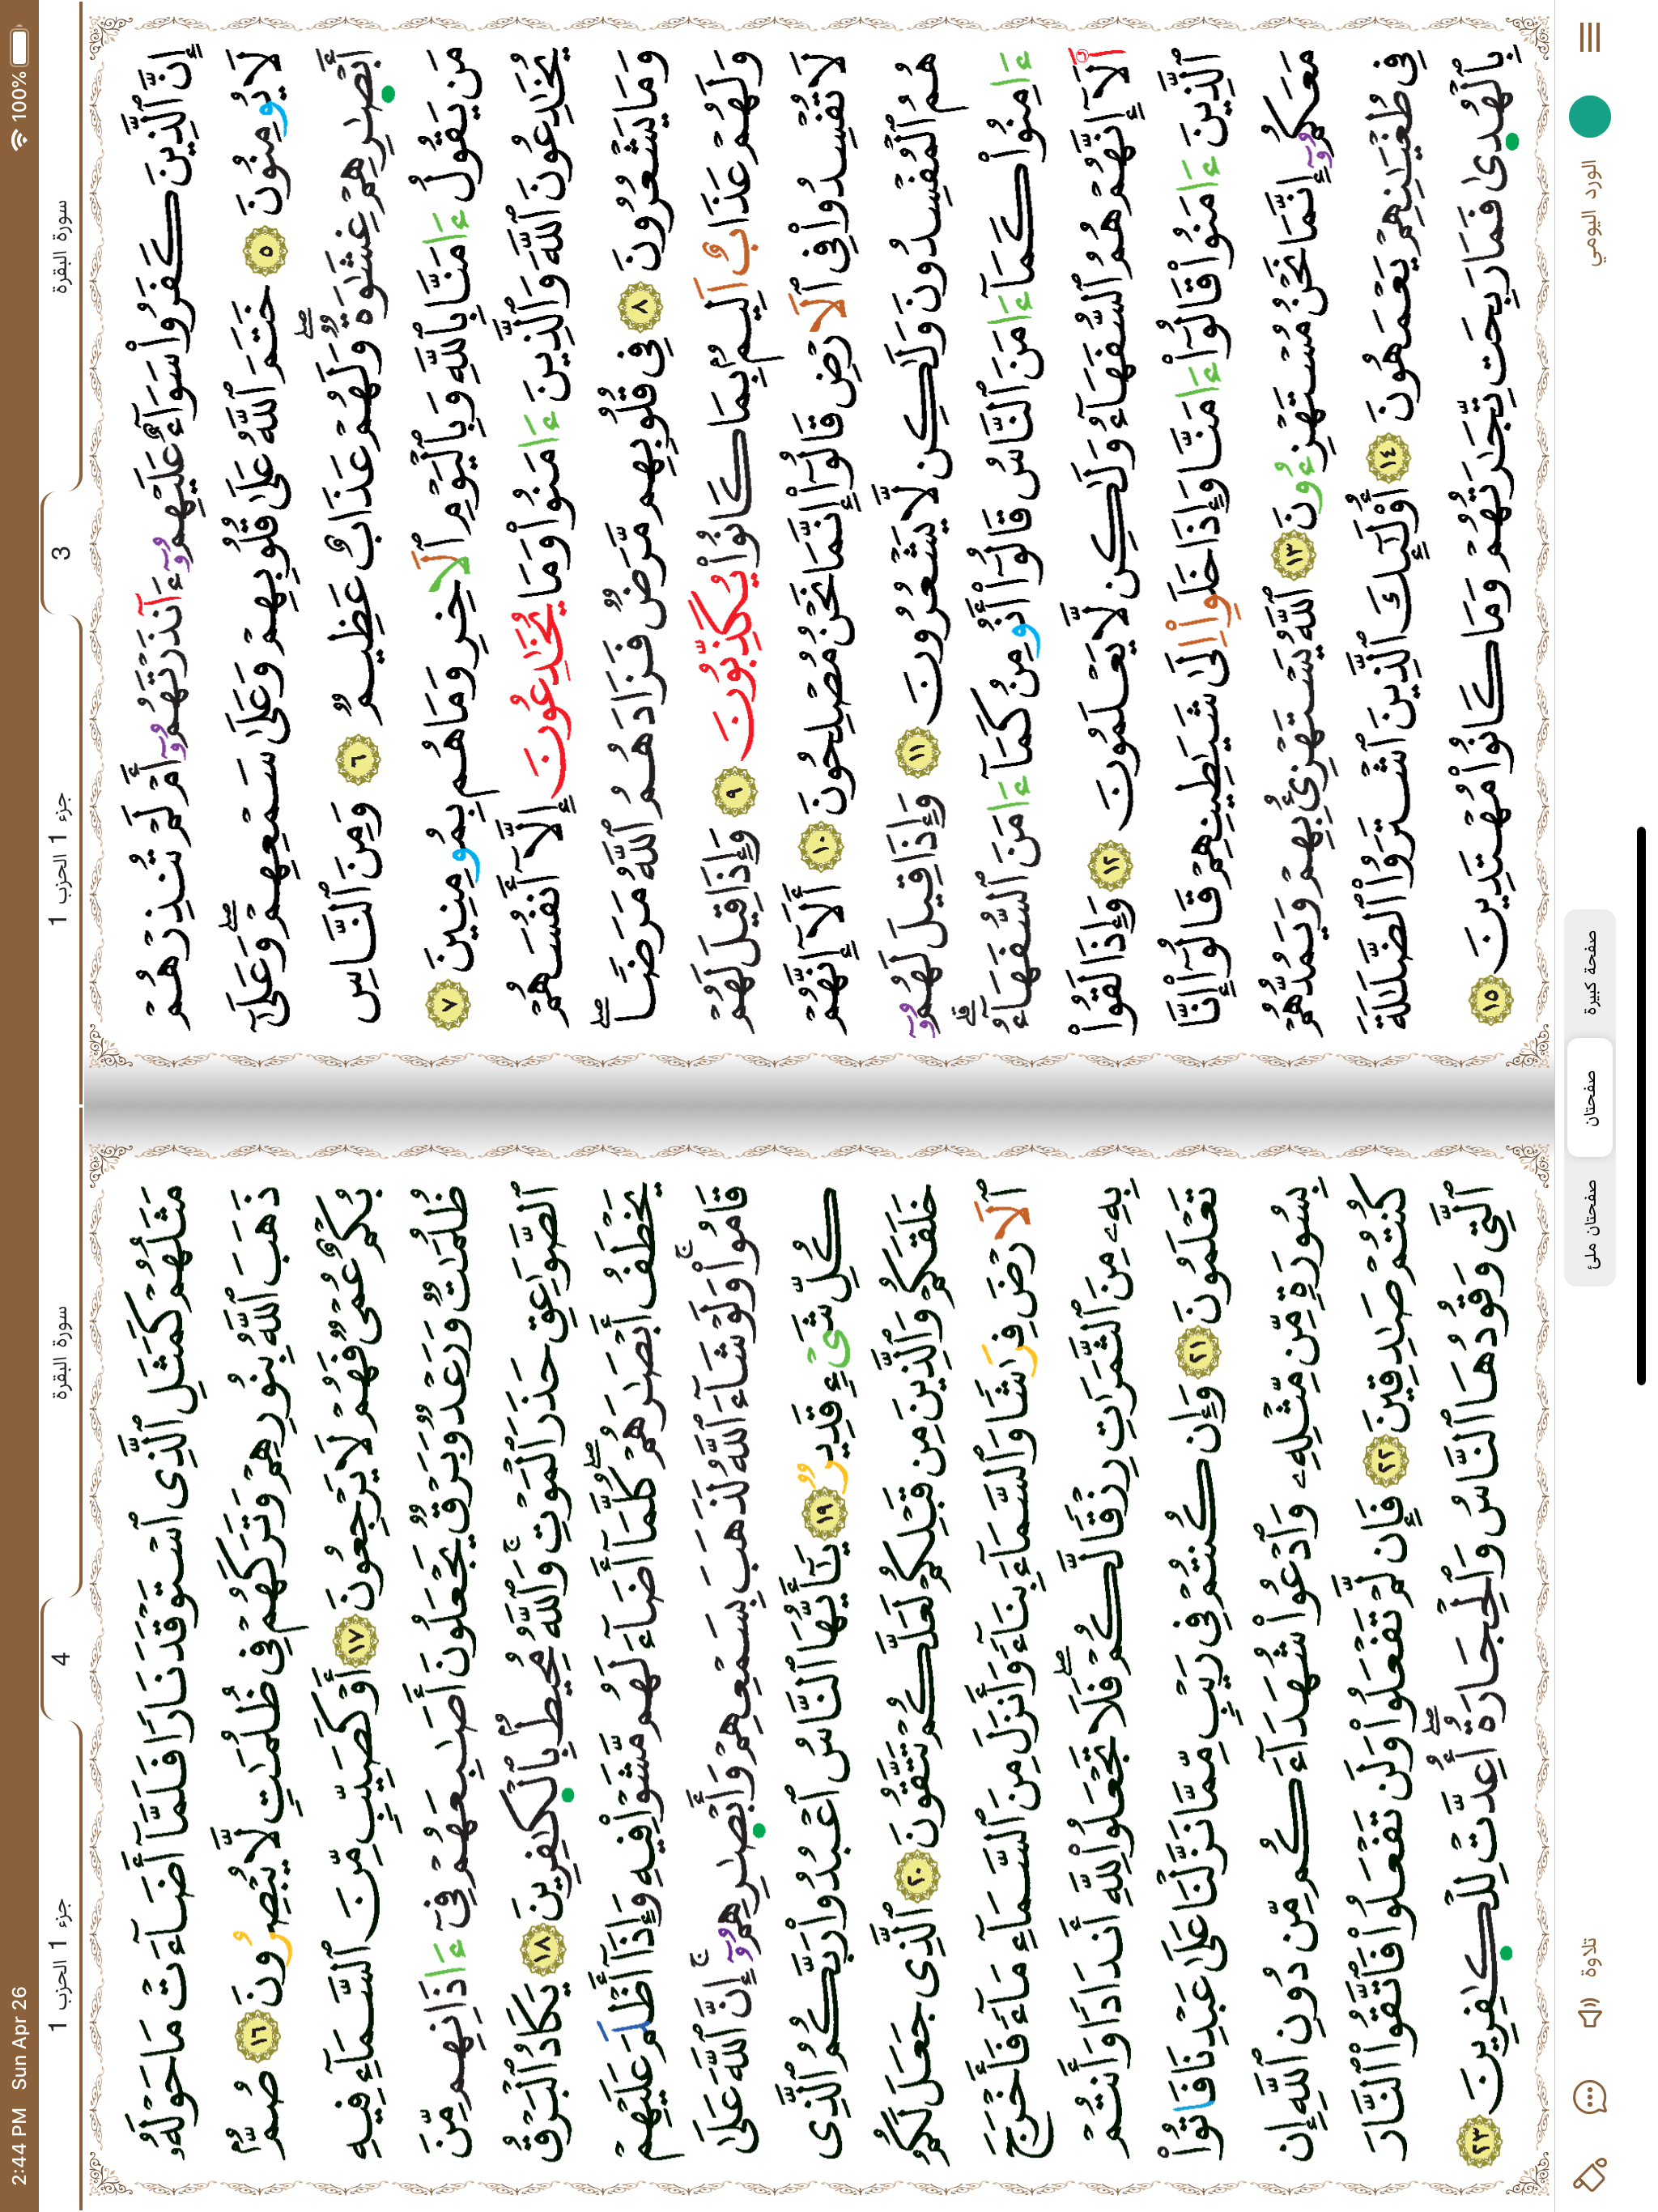 2:44 PM Sun Apr 26
100%
سورة البقرة
3
جزء 1 الحزب 1
إِنَّ ٱلَّذِينَ كَفَرُواْ سَوَآءٌ عَلَيْهِمُۥٓ ءَآنذَرْتَهُمُۥٓ أَمْ لَمْ تُنذِرْهُمْ
لَا يُومِنُونَ ٥ خَتَمَ ٱللَّهُ عَلَىٰ قُلُوبِهِمْ وَعَلَىٰ سَمْعِهِمْ ۖ وَعَلَىٰٓ
أَبْصَـٰرِهِمْ غِشَـٰوَةٌ ۖ وَلَهُمْ عَذَابٌ عَظِيمٌ ٦ وَمِنَ ٱلنَّاسِ
مَن يَقُولُ ءَامَنَّا بِٱللَّهِ وَبِٱلْيَوْمِ ٱلَاخِرِ وَمَا هُم بِمُومِنِينَ ٧
يُخَـٰدِعُونَ ٱللَّهَ وَٱلَّذِينَ ءَامَنُواْ وَمَا يُخَـٰدِعُونَ إِلَّآ أَنفُسَهُمْ
وَمَا يَشْعُرُونَ ٨ فِى قُلُوبِهِم مَّرَضٌ فَزَادَهُمُ ٱللَّهُ مَرَضًا ۖ
وَلَهُمْ عَذَابٌ اَلِيمٌ بِمَا كَانُواْ يُكَذِّبُونَ ٩ وَإِذَا قِيلَ لَهُمْ
لَا تُفْسِدُواْ فِى ٱلَارْضِ قَالُوٓاْ إِنَّمَا نَحْنُ مُصْلِحُونَ ١٠ أَلَآ إِنَّهُمْ
هُمُ ٱلْمُفْسِدُونَ وَلَـٰكِن لَّا يَشْعُرُونَ ١١ وَإِذَا قِيلَ لَهُمُۥٓ
ءَامِنُواْ كَمَآ ءَامَنَ ٱلنَّاسُ قَالُوٓاْ أَنُومِنُ كَمَآ ءَامَنَ ٱلسُّفَهَآءُ ۗ
أَلَآ إِنَّهُمْ هُمُ ٱلسُّفَهَآءُ وَلَـٰكِن لَّا يَعْلَمُونَ ١٢ وَإِذَا لَقُواْ
ٱلَّذِينَ ءَامَنُواْ قَالُوٓاْ ءَامَنَّا وَإِذَا خَلَوِاْ اِلَىٰ شَيَـٰطِينِهِمْ قَالُوٓاْ إِنَّا
مَعَكُمُۥٓ إِنَّمَا نَحْنُ مُسْتَهْزِءُونَ ١٣ ٱللَّهُ يَسْتَهْزِئُ بِهِمْ وَيَمُدُّهُمْ
فِى طُغْيَـٰنِهِمْ يَعْمَهُونَ ١٤ أُوْلَـٰٓئِكَ ٱلَّذِينَ ٱشْتَرَوُاْ ٱلضَّلَـٰلَةَ
بِٱلْهُدَىٰ فَمَا رَبِحَت تِّجَـٰرَتُهُمْ وَمَا كَانُواْ مُهْتَدِينَ ١٥
سورة البقرة
4
جزء 1 الحزب 1
مَثَلُهُمْ كَمَثَلِ ٱلَّذِى ٱسْتَوْقَدَ نَارًا فَلَمَّآ أَضَآءَتْ مَا حَوْلَهُۥ
ذَهَبَ ٱللَّهُ بِنُورِهِمْ وَتَرَكَهُمْ فِى ظُلُمَـٰتٍ لَّا يُبْصِرُونَ ١٦ صُمٌّ
بُكْمٌ عُمْىٌ فَهُمْ لَا يَرْجِعُونَ ١٧ أَوْ كَصَيِّبٍ مِّنَ ٱلسَّمَآءِ فِيهِ
ظُلُمَـٰتٌ وَرَعْدٌ وَبَرْقٌ يَجْعَلُونَ أَصَـٰبِعَهُمْ فِىٓ ءَاذَانِهِم مِّنَ
ٱلصَّوَٰعِقِ حَذَرَ ٱلْمَوْتِ ۚ وَٱللَّهُ مُحِيطٌ بِٱلْكَـٰفِرِينَ ١٨ يَكَادُ ٱلْبَرْقُ
يَخْطَفُ أَبْصَـٰرَهُمْ ۖ كُلَّمَآ أَضَآءَ لَهُم مَّشَوْاْ فِيهِ وَإِذَآ أَظْلَمَ عَلَيْهِمْ
قَامُواْ ۚ وَلَوْ شَآءَ ٱللَّهُ لَذَهَبَ بِسَمْعِهِمْ وَأَبْصَـٰرِهِمُۥٓ ۚ إِنَّ ٱللَّهَ عَلَىٰ
كُلِّ شَىْءٍ قَدِيرٌ ١٩ يَـٰٓأَيُّهَا ٱلنَّاسُ ٱعْبُدُواْ رَبَّكُمُ ٱلَّذِى
خَلَقَكُمْ وَٱلَّذِينَ مِن قَبْلِكُمْ لَعَلَّكُمْ تَتَّقُونَ ٢٠ ٱلَّذِى جَعَلَ لَكُمُ
ٱلَارْضَ فِرَٰشًا وَٱلسَّمَآءَ بِنَآءً وَأَنزَلَ مِنَ ٱلسَّمَآءِ مَآءً فَأَخْرَجَ
بِهِۦ مِنَ ٱلثَّمَرَٰتِ رِزْقًا لَّكُمْ ۖ فَلَا تَجْعَلُواْ لِلَّهِ أَندَادًا وَأَنتُمْ
تَعْلَمُونَ ٢١ وَإِن كُنتُمْ فِى رَيْبٍ مِّمَّا نَزَّلْنَا عَلَىٰ عَبْدِنَا فَاتُواْ
بِسُورَةٍ مِّن مِّثْلِهِۦ وَٱدْعُواْ شُهَدَآءَكُم مِّن دُونِ ٱللَّهِ إِن
كُنتُمْ صَـٰدِقِينَ ٢٢ فَإِن لَّمْ تَفْعَلُواْ وَلَن تَفْعَلُواْ فَٱتَّقُواْ ٱلنَّارَ
ٱلَّتِى وَقُودُهَا ٱلنَّاسُ وَٱلْحِجَارَةُ ۖ أُعِدَّتْ لِلْكَـٰفِرِينَ ٢٣
الورد اليومي
صفحة كبيرة
صفحتان
صفحتان ملئ
تلاوة